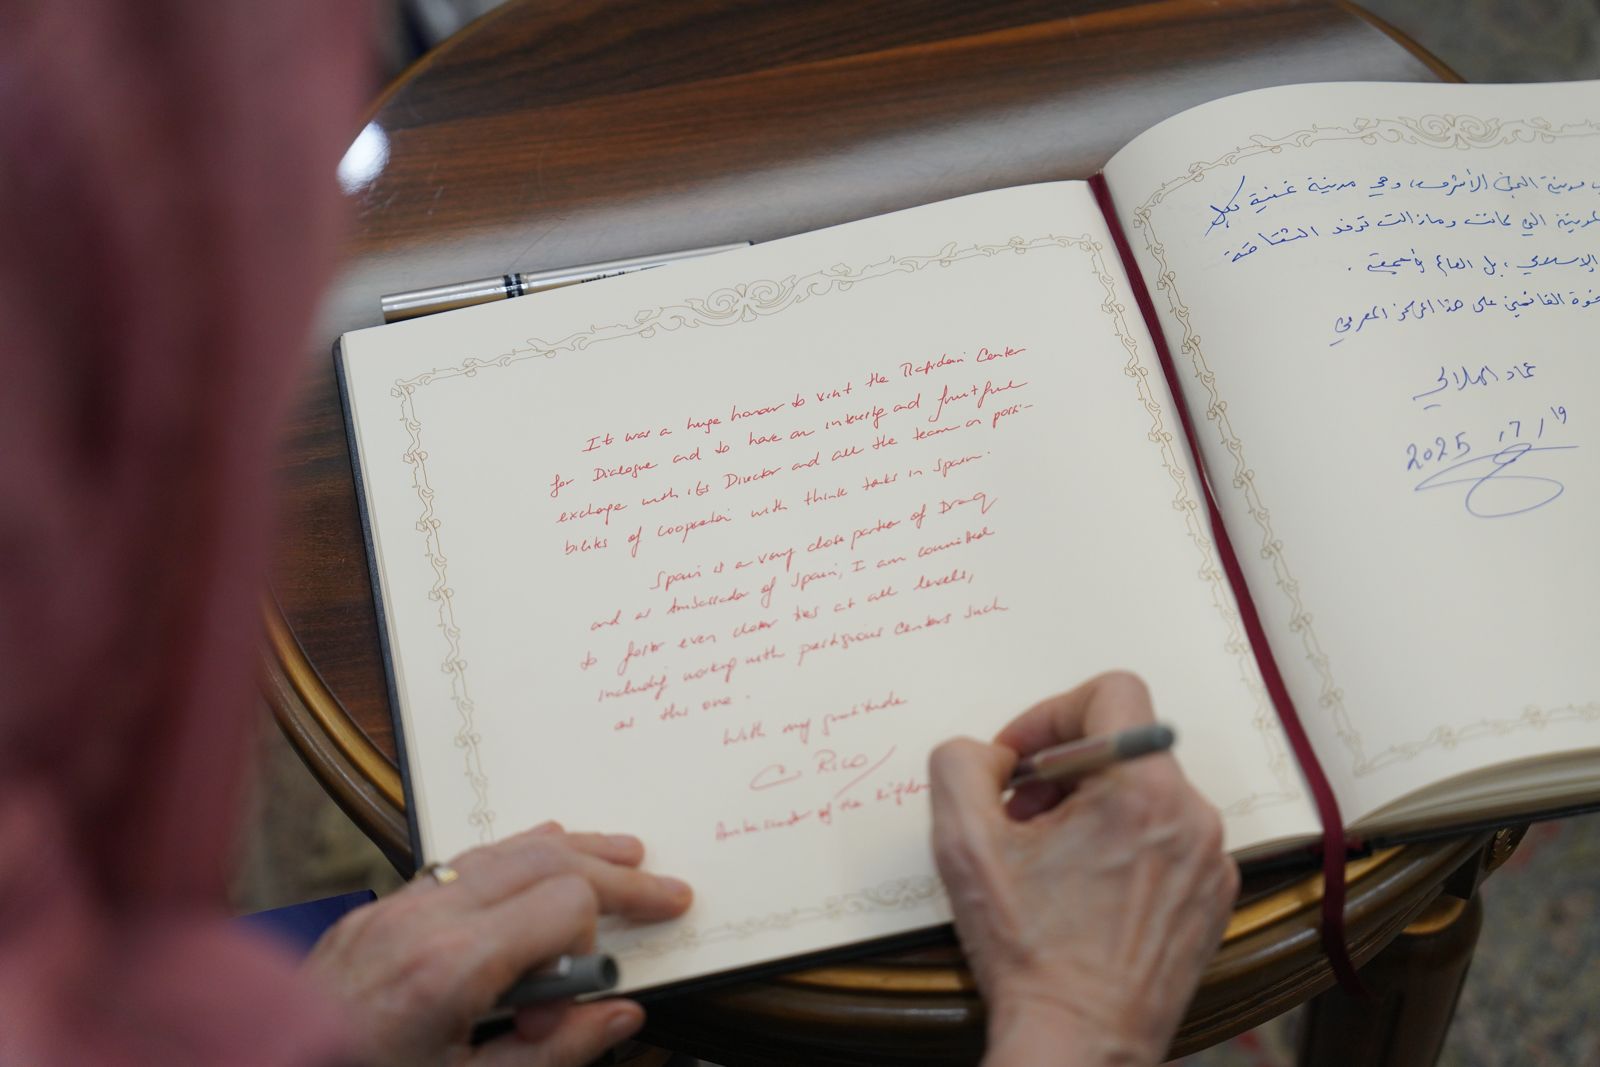 It was a huge honour to visit the Rafidain Center
for Dialogue and to have an intensive and fruitful
exchange with its Director and all the team on possi-
bilities of cooperation with think tanks in Spain.
Spain is a very close partner of Iraq
and as Ambassador of Spain, I am committed
to foster even closer ties at all levels,
including working with prestigious Centers such
as this one.
With my gratitude
C Rico
Ambassador of the Kingdom
مدينة النجف الأشرف، وهي مدينة غنية بكل
المدينة التي كانت ومازالت ترفد الثقافة
الإسلامي، بل العالم وأجمعه.
القائمين على هذا المركز المعرفي
عماد الهلالي
2025 / 7 / 19